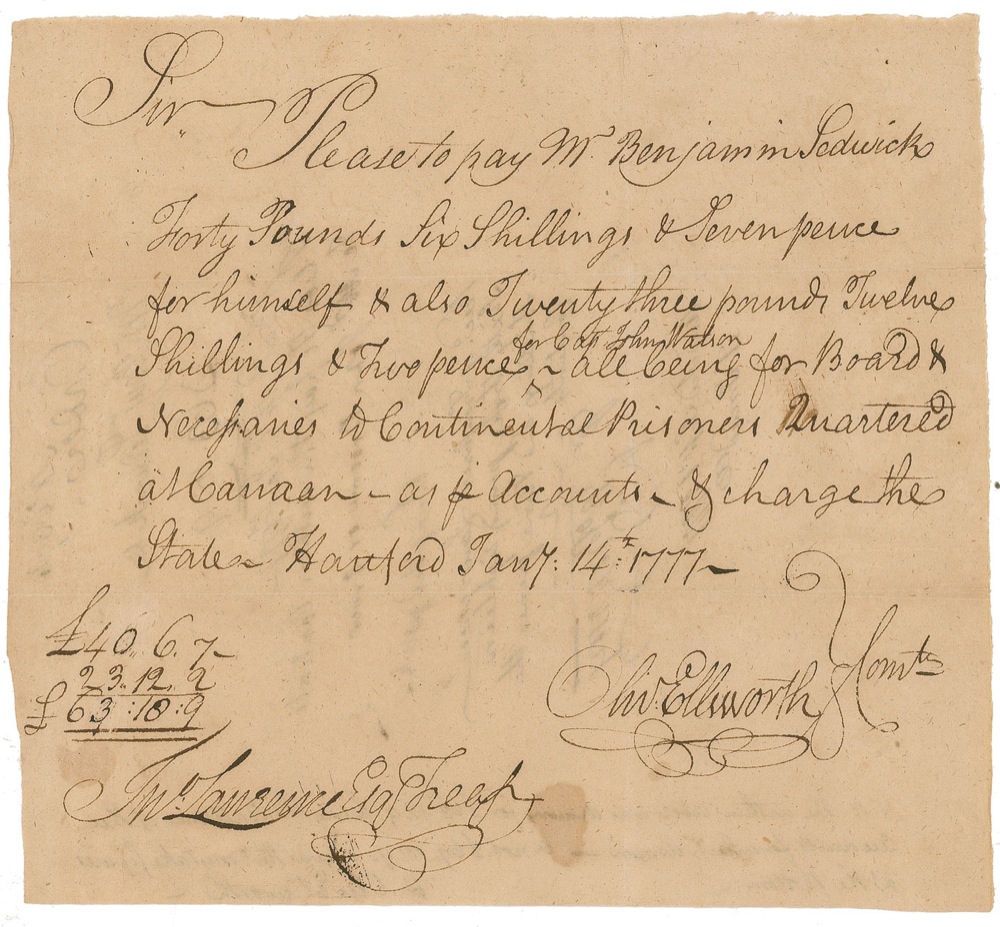 Sir,,
Please to pay Mr. Benjamin Sedwick
Forty Pounds Six Shillings & Seven pence
for himself & also Twenty three pounds Twelve
for Capt John Watson
Shillings & Two pence ^ ~ all being for Board &
Necessaries to Continental Prisoners Quartered
at Canaan - as ⅌ Accounts ~ & charge the
State ~ Hartford Jany: 14th: 1777 ~
£40,, 6. 7 ~
23,, 12, 2
£63 :18 :9
Olivr. Ellsworth } Comtee
Jno. Lawrence Esq Treasr